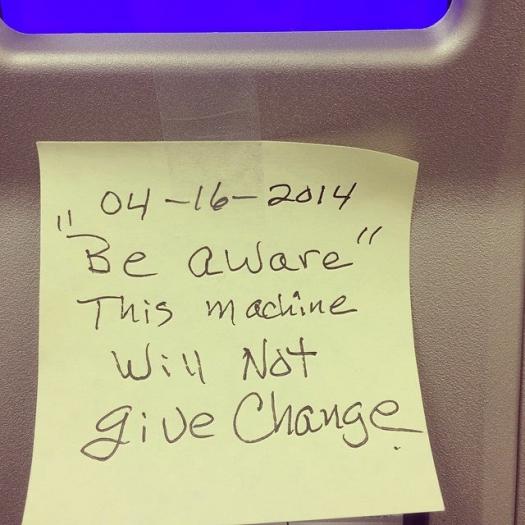 04-16-2014
"Be aware"
This machine
Will Not
give Change.